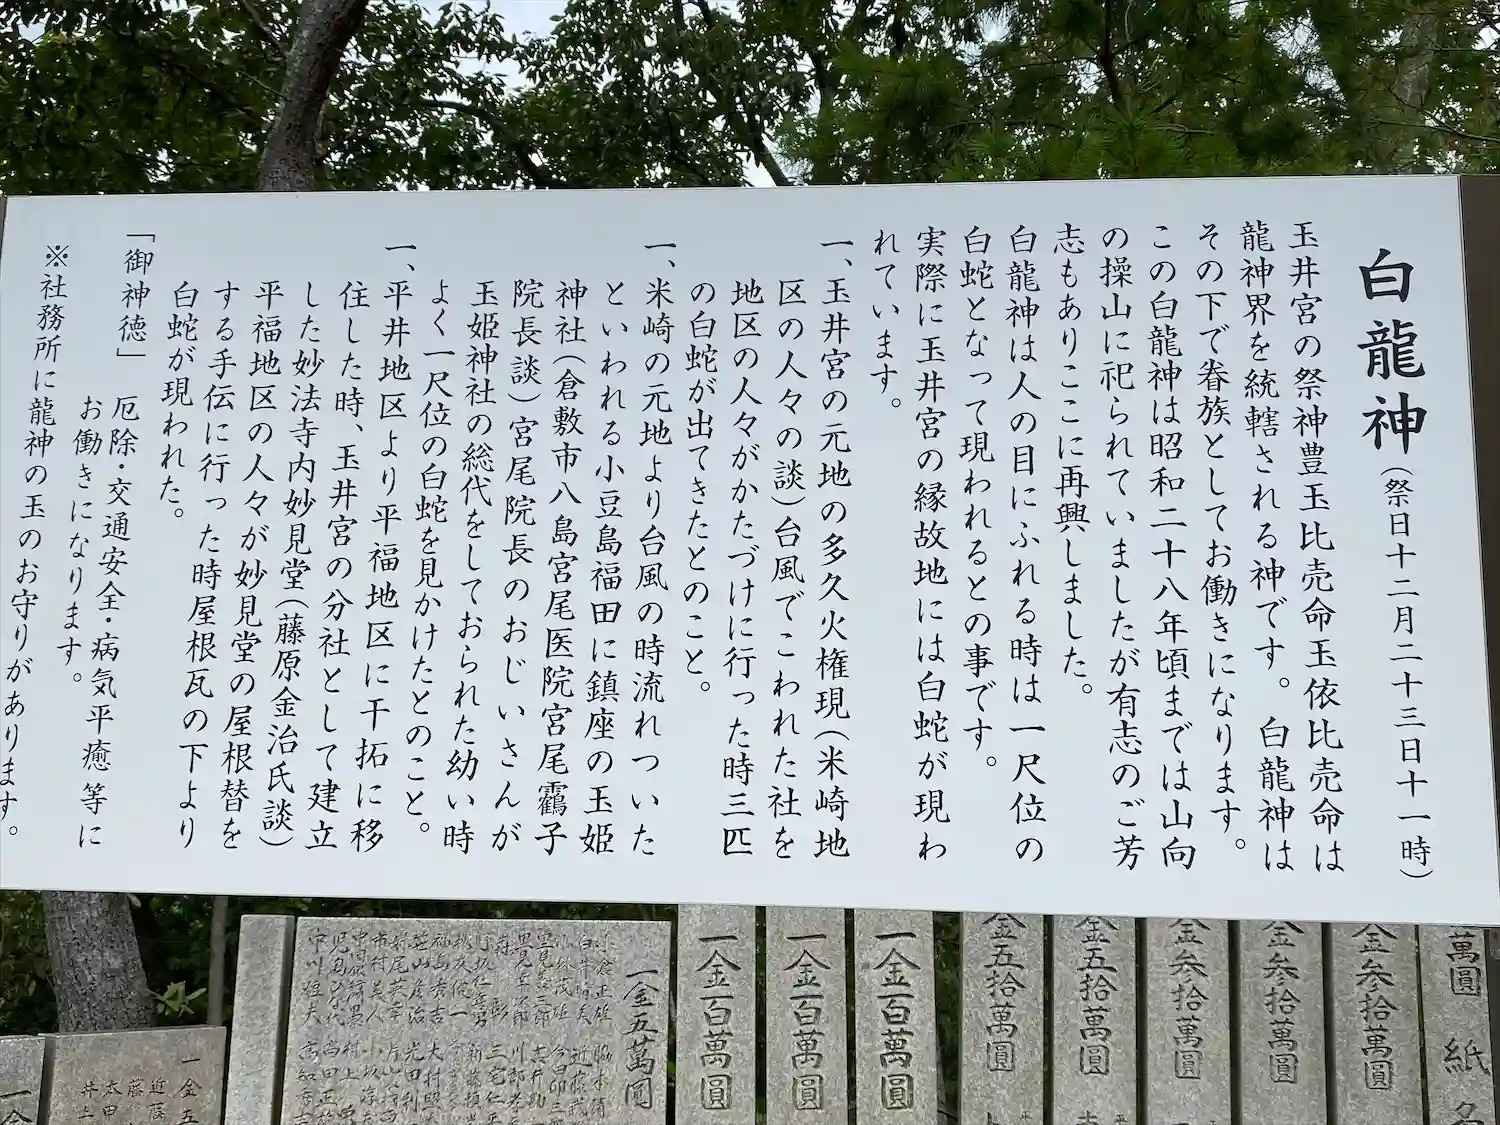 白龍神(祭日十二月二十三日十一時)
玉井宮の祭神豊玉比売命玉依比売命は
龍神界を統轄される神です。白龍神は
その下で眷族としてお働きになります。
この白龍神は昭和二十八年頃までは山向
の操山に祀られていましたが有志のご芳
志もありここに再興しました。
白龍神は人の目にふれる時は一尺位の
白蛇となって現われるとの事です。
実際に玉井宮の縁故地には白蛇が現わ
れています。
一、玉井宮の元地の多久火権現(米崎地
区の人々の談)台風でこわれた社を
地区の人々がかたづけに行った時三匹
の白蛇が出てきたとのこと。
一、米崎の元地より台風の時流れついた
といわれる小豆島福田に鎮座の玉姫
神社(倉敷市八島宮尾医院宮尾靏子
院長談)宮尾院長のおじいさんが
玉姫神社の総代をしておられた幼い時
よく一尺位の白蛇を見かけたとのこと。
一、平井地区より平福地区に干拓に移
住した時、玉井宮の分社として建立
した妙法寺内妙見堂(藤原金治氏談)
平福地区の人々が妙見堂の屋根替を
する手伝に行った時屋根瓦の下より
白蛇が現われた。
「御神徳」 厄除・交通安全・病気平癒等に
お働きになります。
※社務所に龍神の玉のお守りがあります。
萬圓 紙
金参拾萬圓
金参拾萬圓
金参拾萬圓
金五拾萬圓
金五拾萬圓
一金百萬圓
一金百萬圓
一金百萬圓
一金五萬圓
一金五
近藤
藤
太田
井上
一金